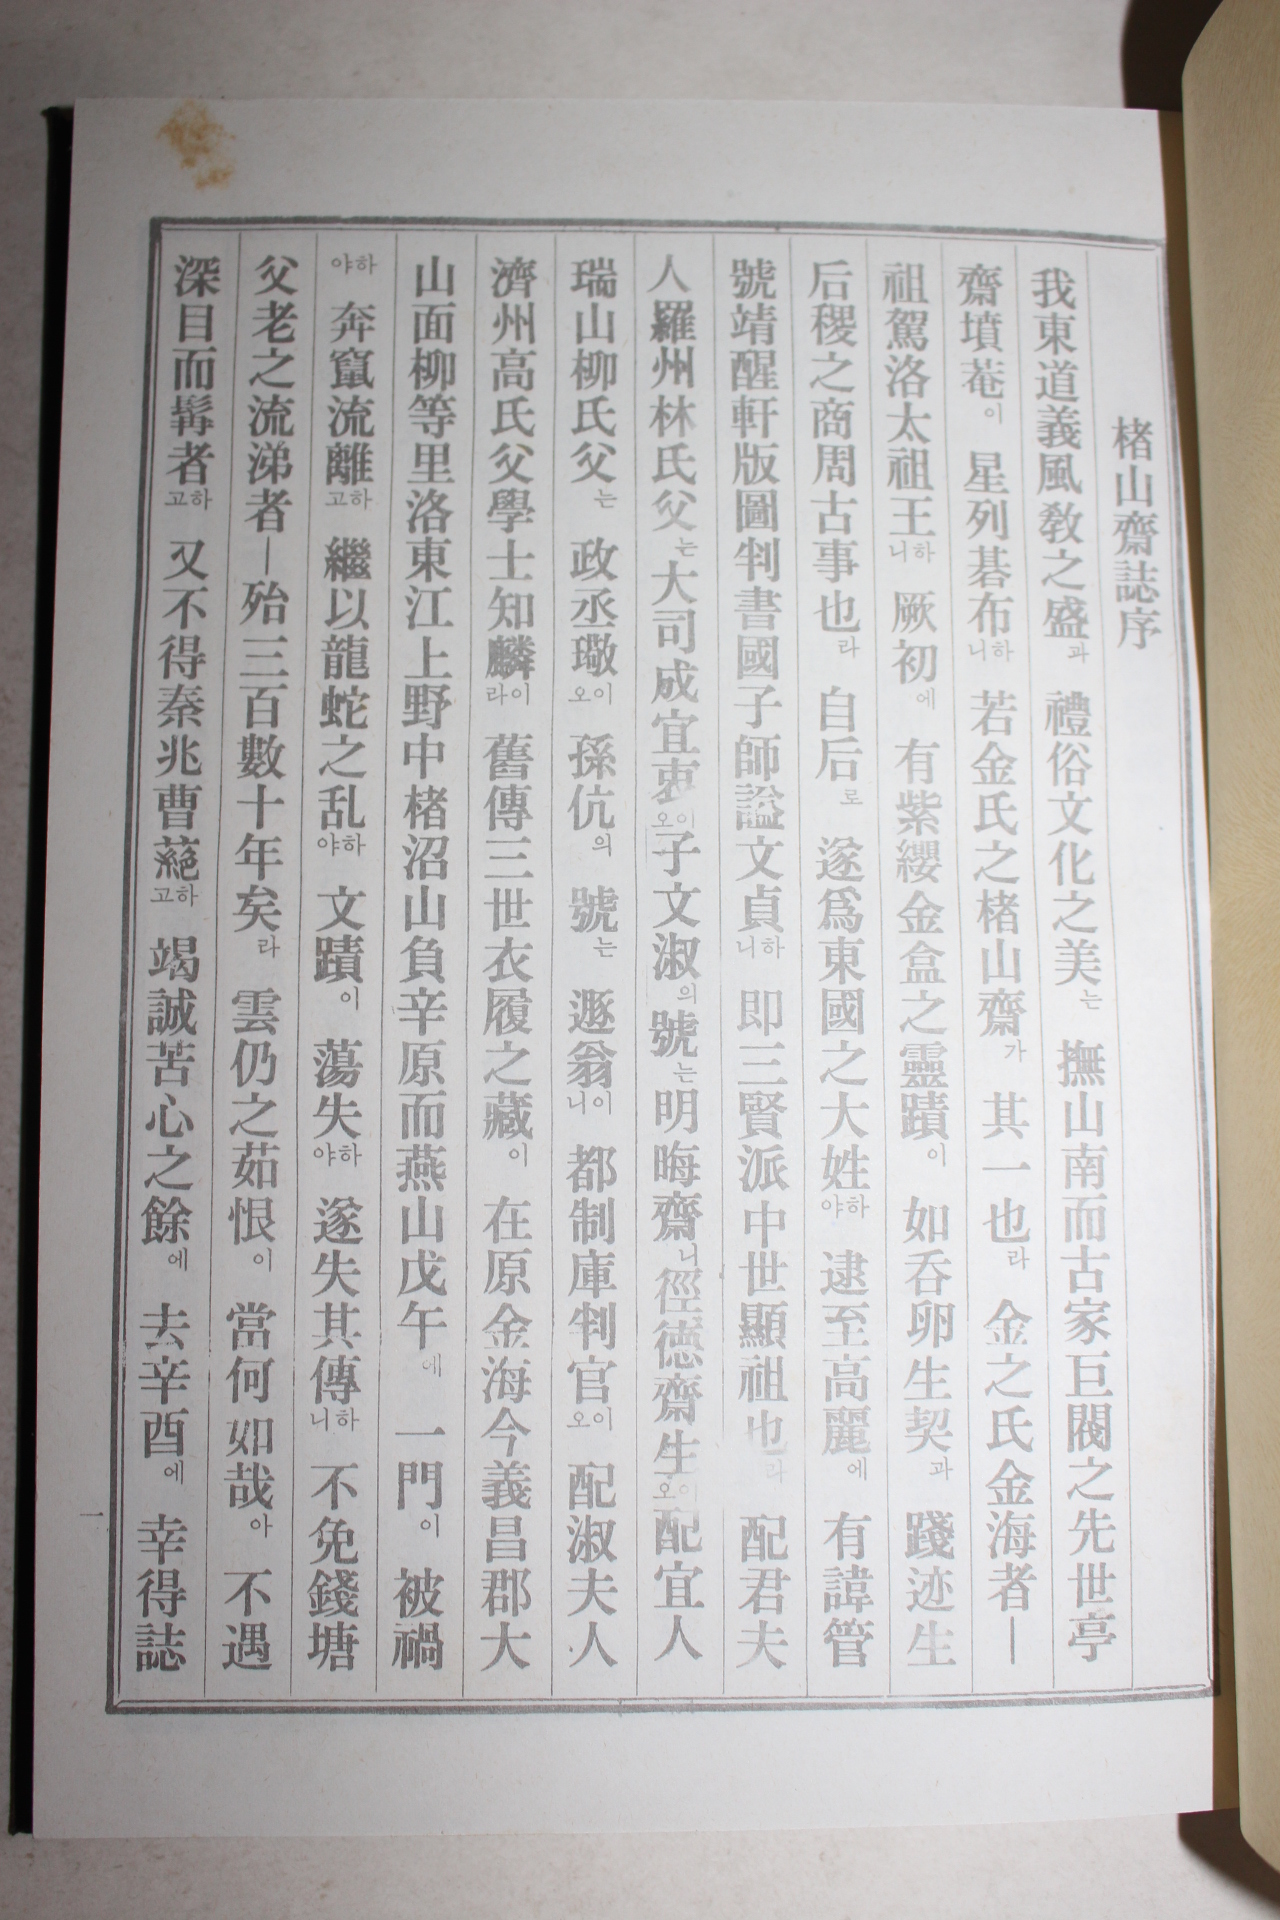 楮山齋誌序
我東道義風敎之盛과 禮俗文化之美는 撫山南而古家巨閥之先世亭
齋墳菴이 星列碁布하니 若金氏之楮山齋가 其一也라 金之氏金海者ㅣ
祖駕洛太祖王하니 厥初에 有紫纓金盒之靈蹟이 如呑卵生契과 踐迹生
后稷之商周古事也라 自后로 遂爲東國之大姓하야 逮至高麗에 有諱管
號靖醒軒版圖判書國子師謚文貞하니 即三賢派中世顯祖也라 配君夫
人羅州林氏父는大司成宜衷이오子文淑의號는明晦齋니徑德齋生이오配宜人
瑞山柳氏父는 政丞璥이오 孫伉의 號는 遯翁이니 都制庫判官이오 配淑夫人
濟州高氏父學士知麟이라 舊傳三世衣履之藏이 在原金海今義昌郡大
山面柳等里洛東江上野中楮沼山負辛原而燕山戊午에 一門이 被禍
하야 奔竄流離하고 繼以龍蛇之乱하야 文蹟이 蕩失하야 遂失其傳하니 不免錢塘
父老之流涕者ㅣ殆三百數十年矣라 雲仍之茹恨이 當何如哉아 不遇
深目而髯者하고 又不得秦兆曹蕝하고 竭誠苦心之餘에 去辛酉에 幸得誌
一